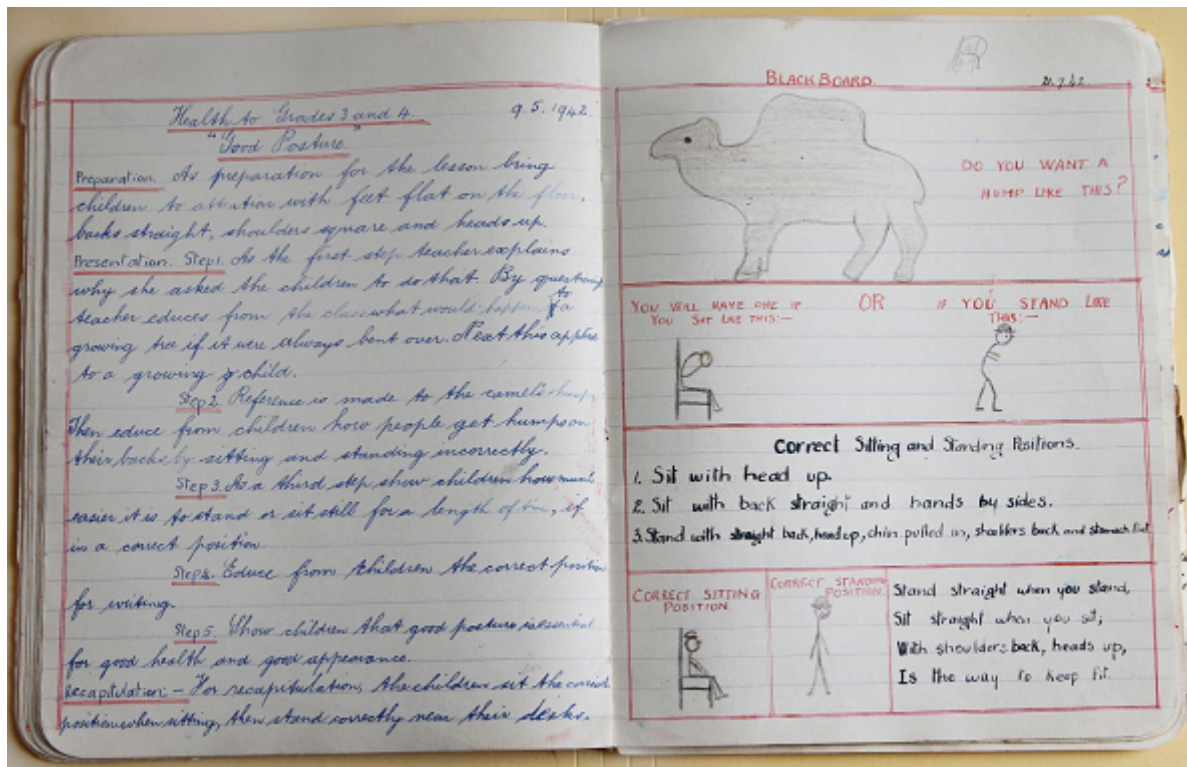 Health to Grades 3 and 4. 9.5.1942.
"Good Posture."
Preparation. As preparation for the lesson bring
children to attention with feet flat on the floor,
backs straight, shoulders square and heads up.
Presentation. Step 1. As the first step teacher explains
why she asked the children to do that. By questioning
teacher educes from the class what would happen to a
growing tree if it were always bent over. Next this applies
to a growing child.
Step 2. Reference is made to the camel's hump.
Then educe from children how people get humps on
their backs by sitting and standing incorrectly.
Step 3. As a third step show children how much
easier it is to stand or sit still for a length of time, if
in a correct position.
Step 4. Educe from children the correct position
for writing.
Step 5. Show children that good posture is essential
for good health and good appearance.
Recapitulation:— For recapitulation, the children sit the correct
position when sitting, then stand correctly near their desks.
BLACKBOARD.
DO YOU WANT A
HUMP LIKE THIS?
YOU WILL HAVE ONE IF
YOU SIT LIKE THIS:—
OR
IF YOU STAND LIKE
THIS:—
Correct Sitting and Standing Positions.
1. Sit with head up.
2. Sit with back straight and hands by sides.
3. Stand with straight back, head up, chin pulled in, shoulders back and stomach flat.
CORRECT SITTING
POSITION.
CORRECT STANDING
POSITION.
Stand straight when you stand,
Sit straight when you sit;
With shoulders back, heads up,
Is the way to keep fit.